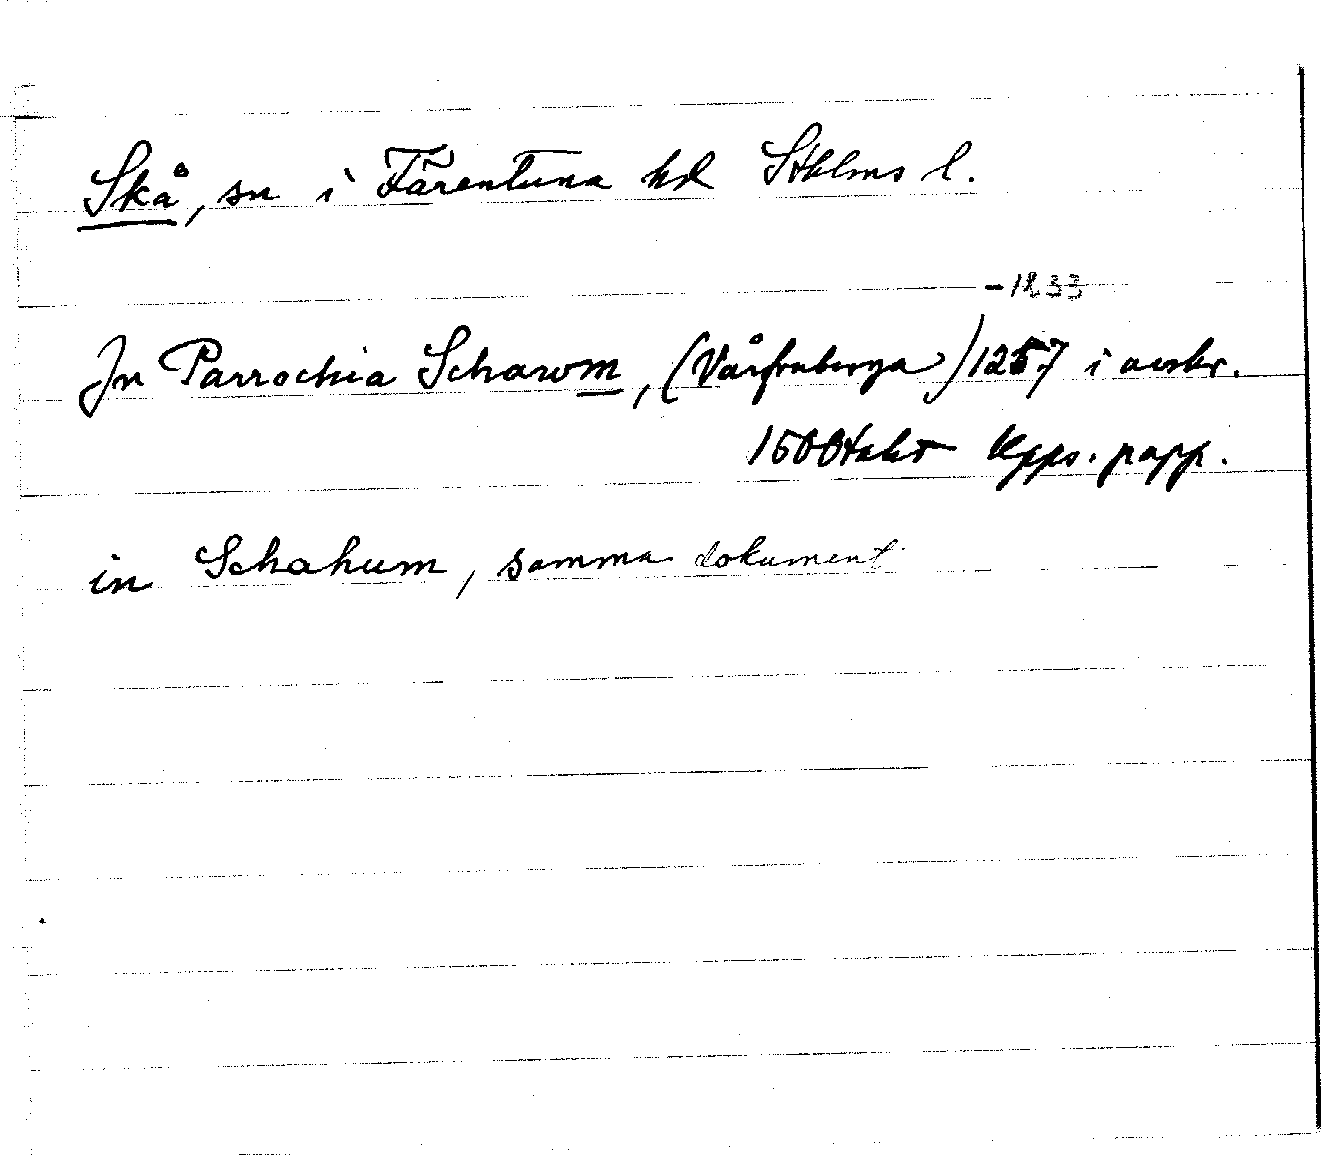 Skå, sn i Färentuna hd Sthlms l.
-1233
In Parrochia Scharom, (Vårfruberga) 1257 i avskr.
1500talet Kpps. papp.
in Schahum, samma dokument